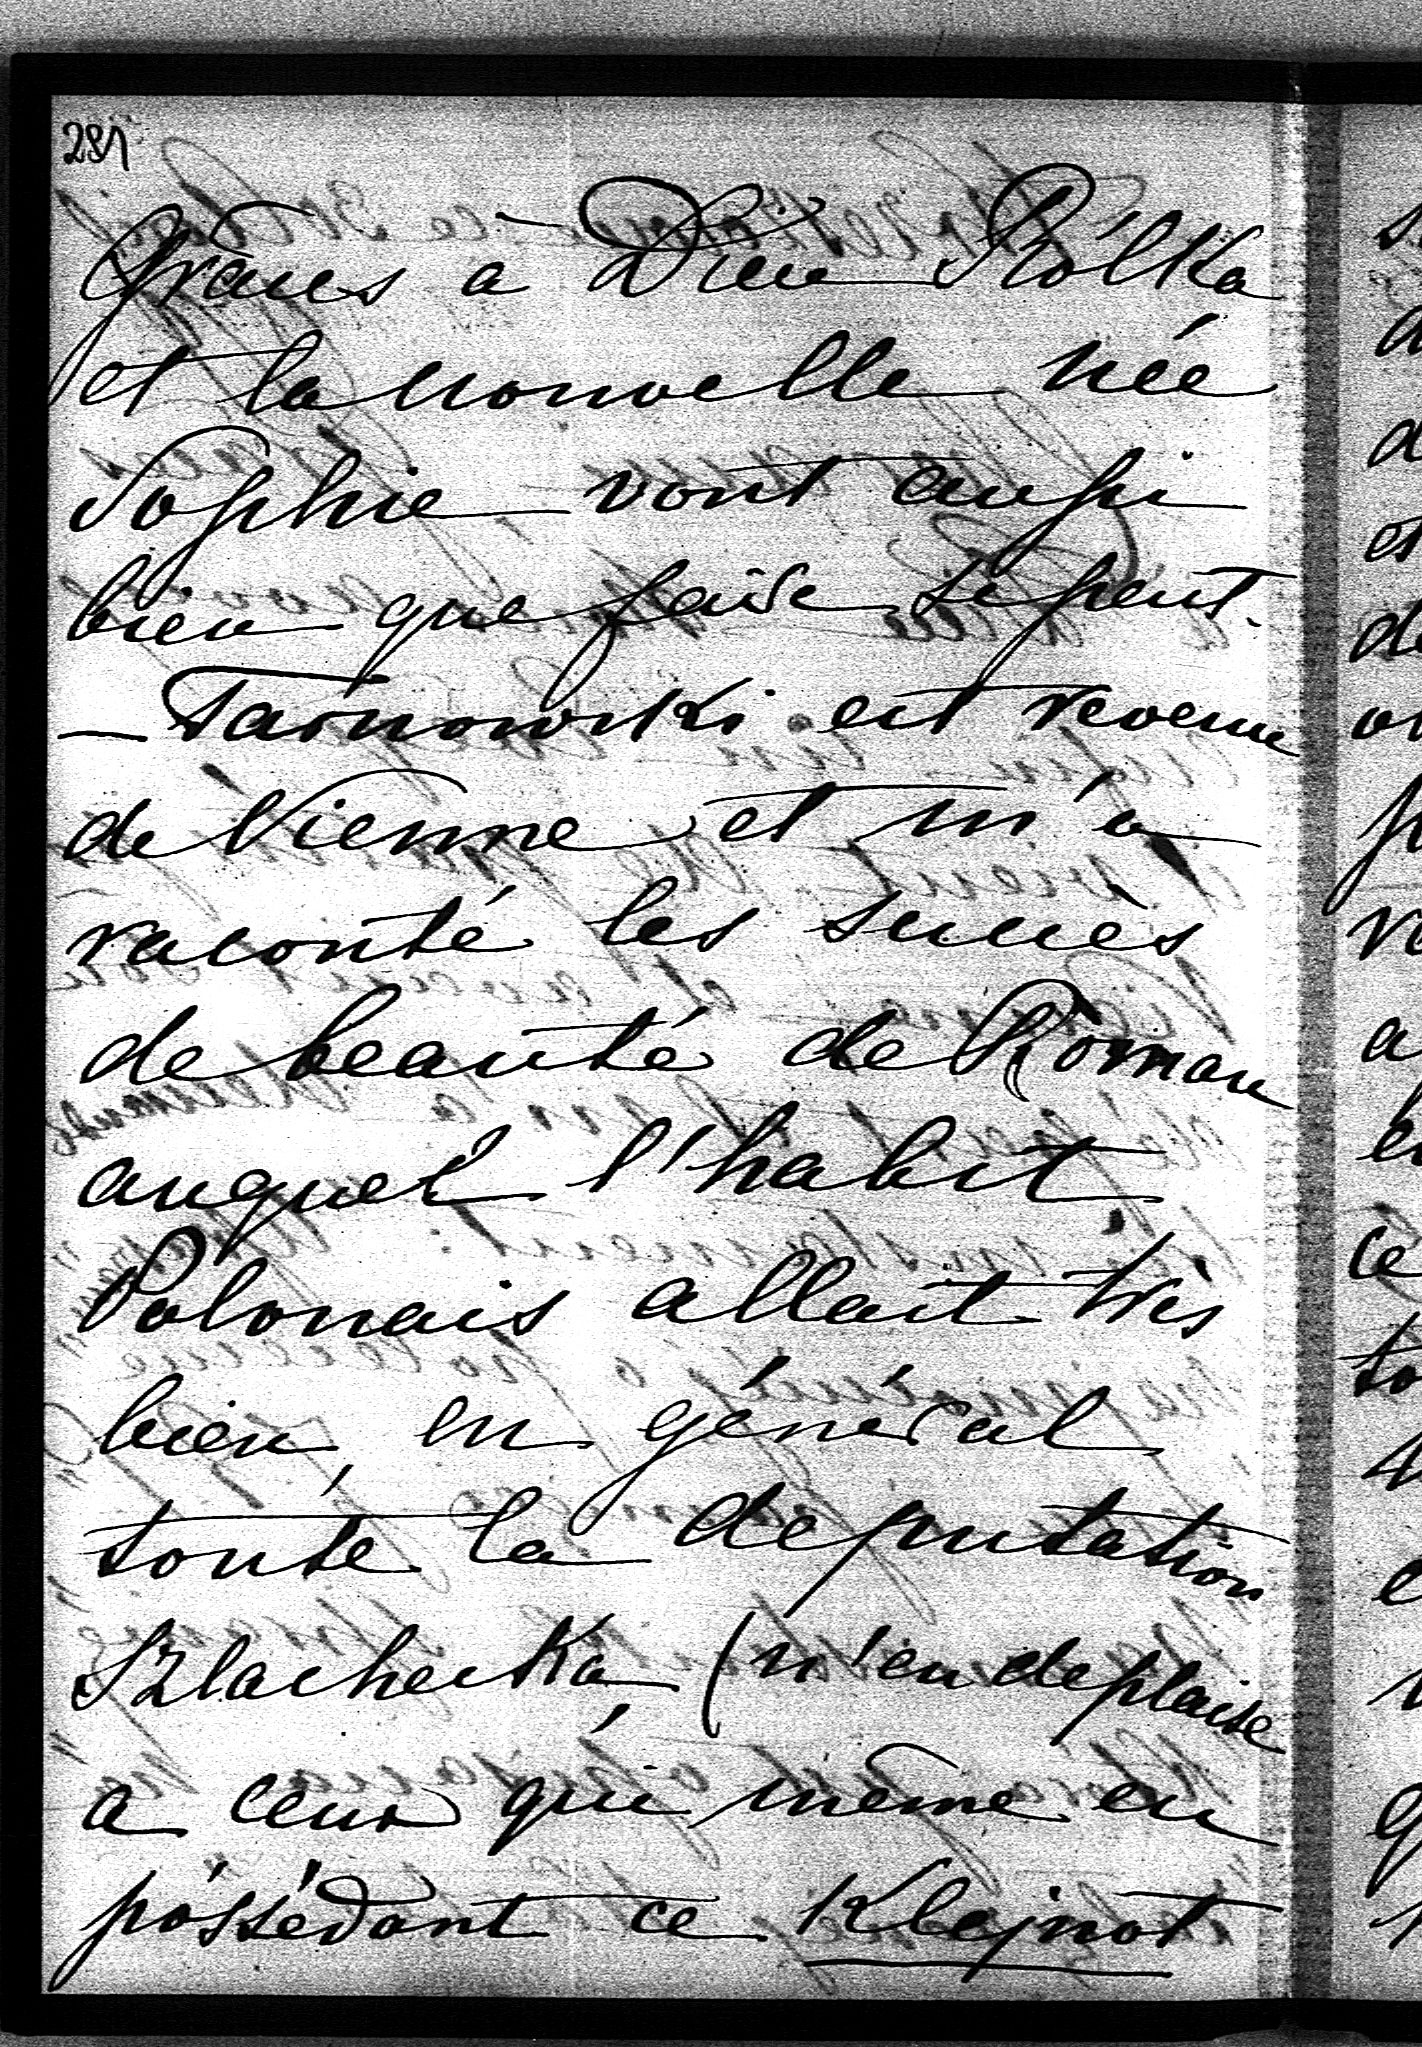 281
Grâces a Dieu Rólka
et la nouvelle née
Sophie vont aussi
bien que faire se peut.
— Tarnowski est revenu
de Vienne et m'a
raconté les succès
de beauté de Roman
auquel l'habit
Polonais allait très
bien, en général
toute la deputation
Szlachecka (n'en deplaise
a ceux qui même en
possédant ce Klejnot